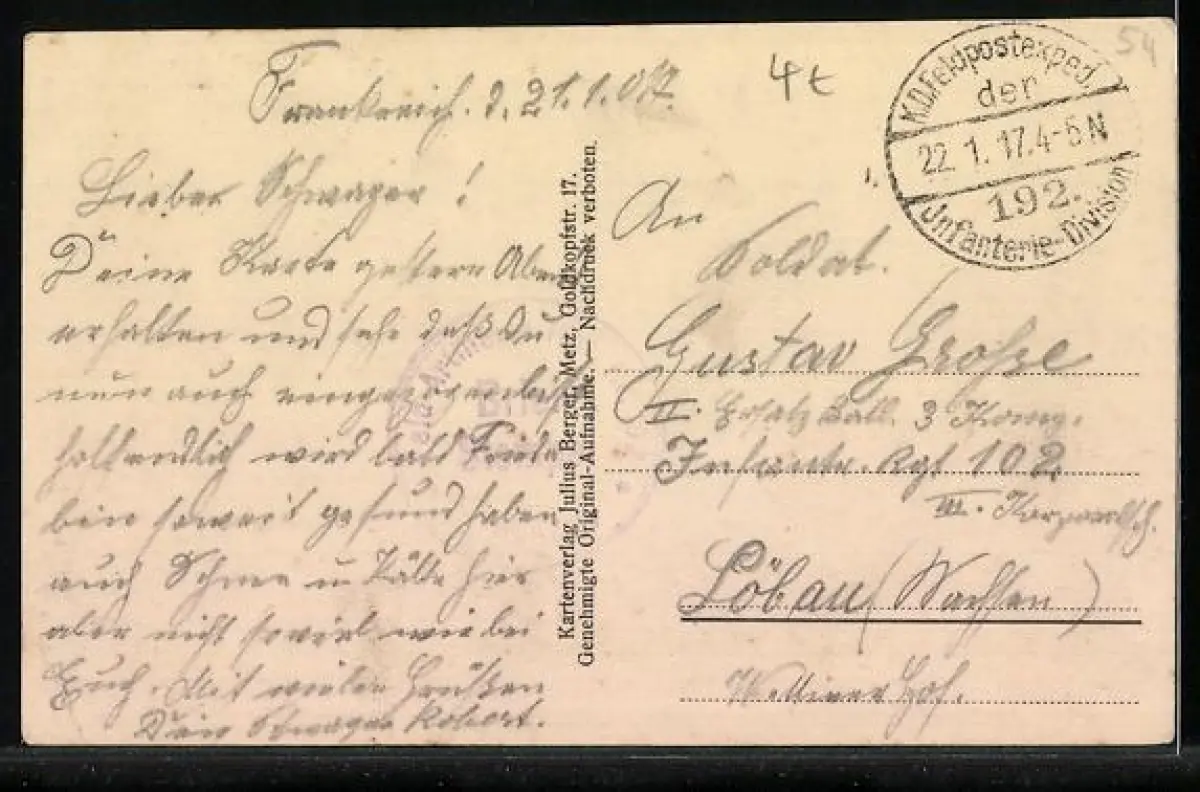 Frankreich. d. 21.1.017.
Lieber Schwager!
Deine Karte gestern Abend
erhalten und sehe daß Du
nun auch eingezogen bist
hoffendlich wird bald Friede
bin soweit gesund haben
auch Schnee u Kälte hier
aber nicht soviel wie bei
Euch. Mit vielen Grüßen
Dein Schwager Robert.
Kartenverlag Julius Berger, Metz, Goldkopfstr. 17.
Genehmigte Original-Aufnahme. — Nachdruck verboten.
4 t
54
K.D.Feldpostexped.
der
22.1.17.4-5N
192.
Infanterie-Division
An
Soldat.
Gustav Große
II. Ersatz Batl. 3 Komp.
Infantr. Rgt 102
III. Korporlsch.
Löbau (Sachsen)
Hof.